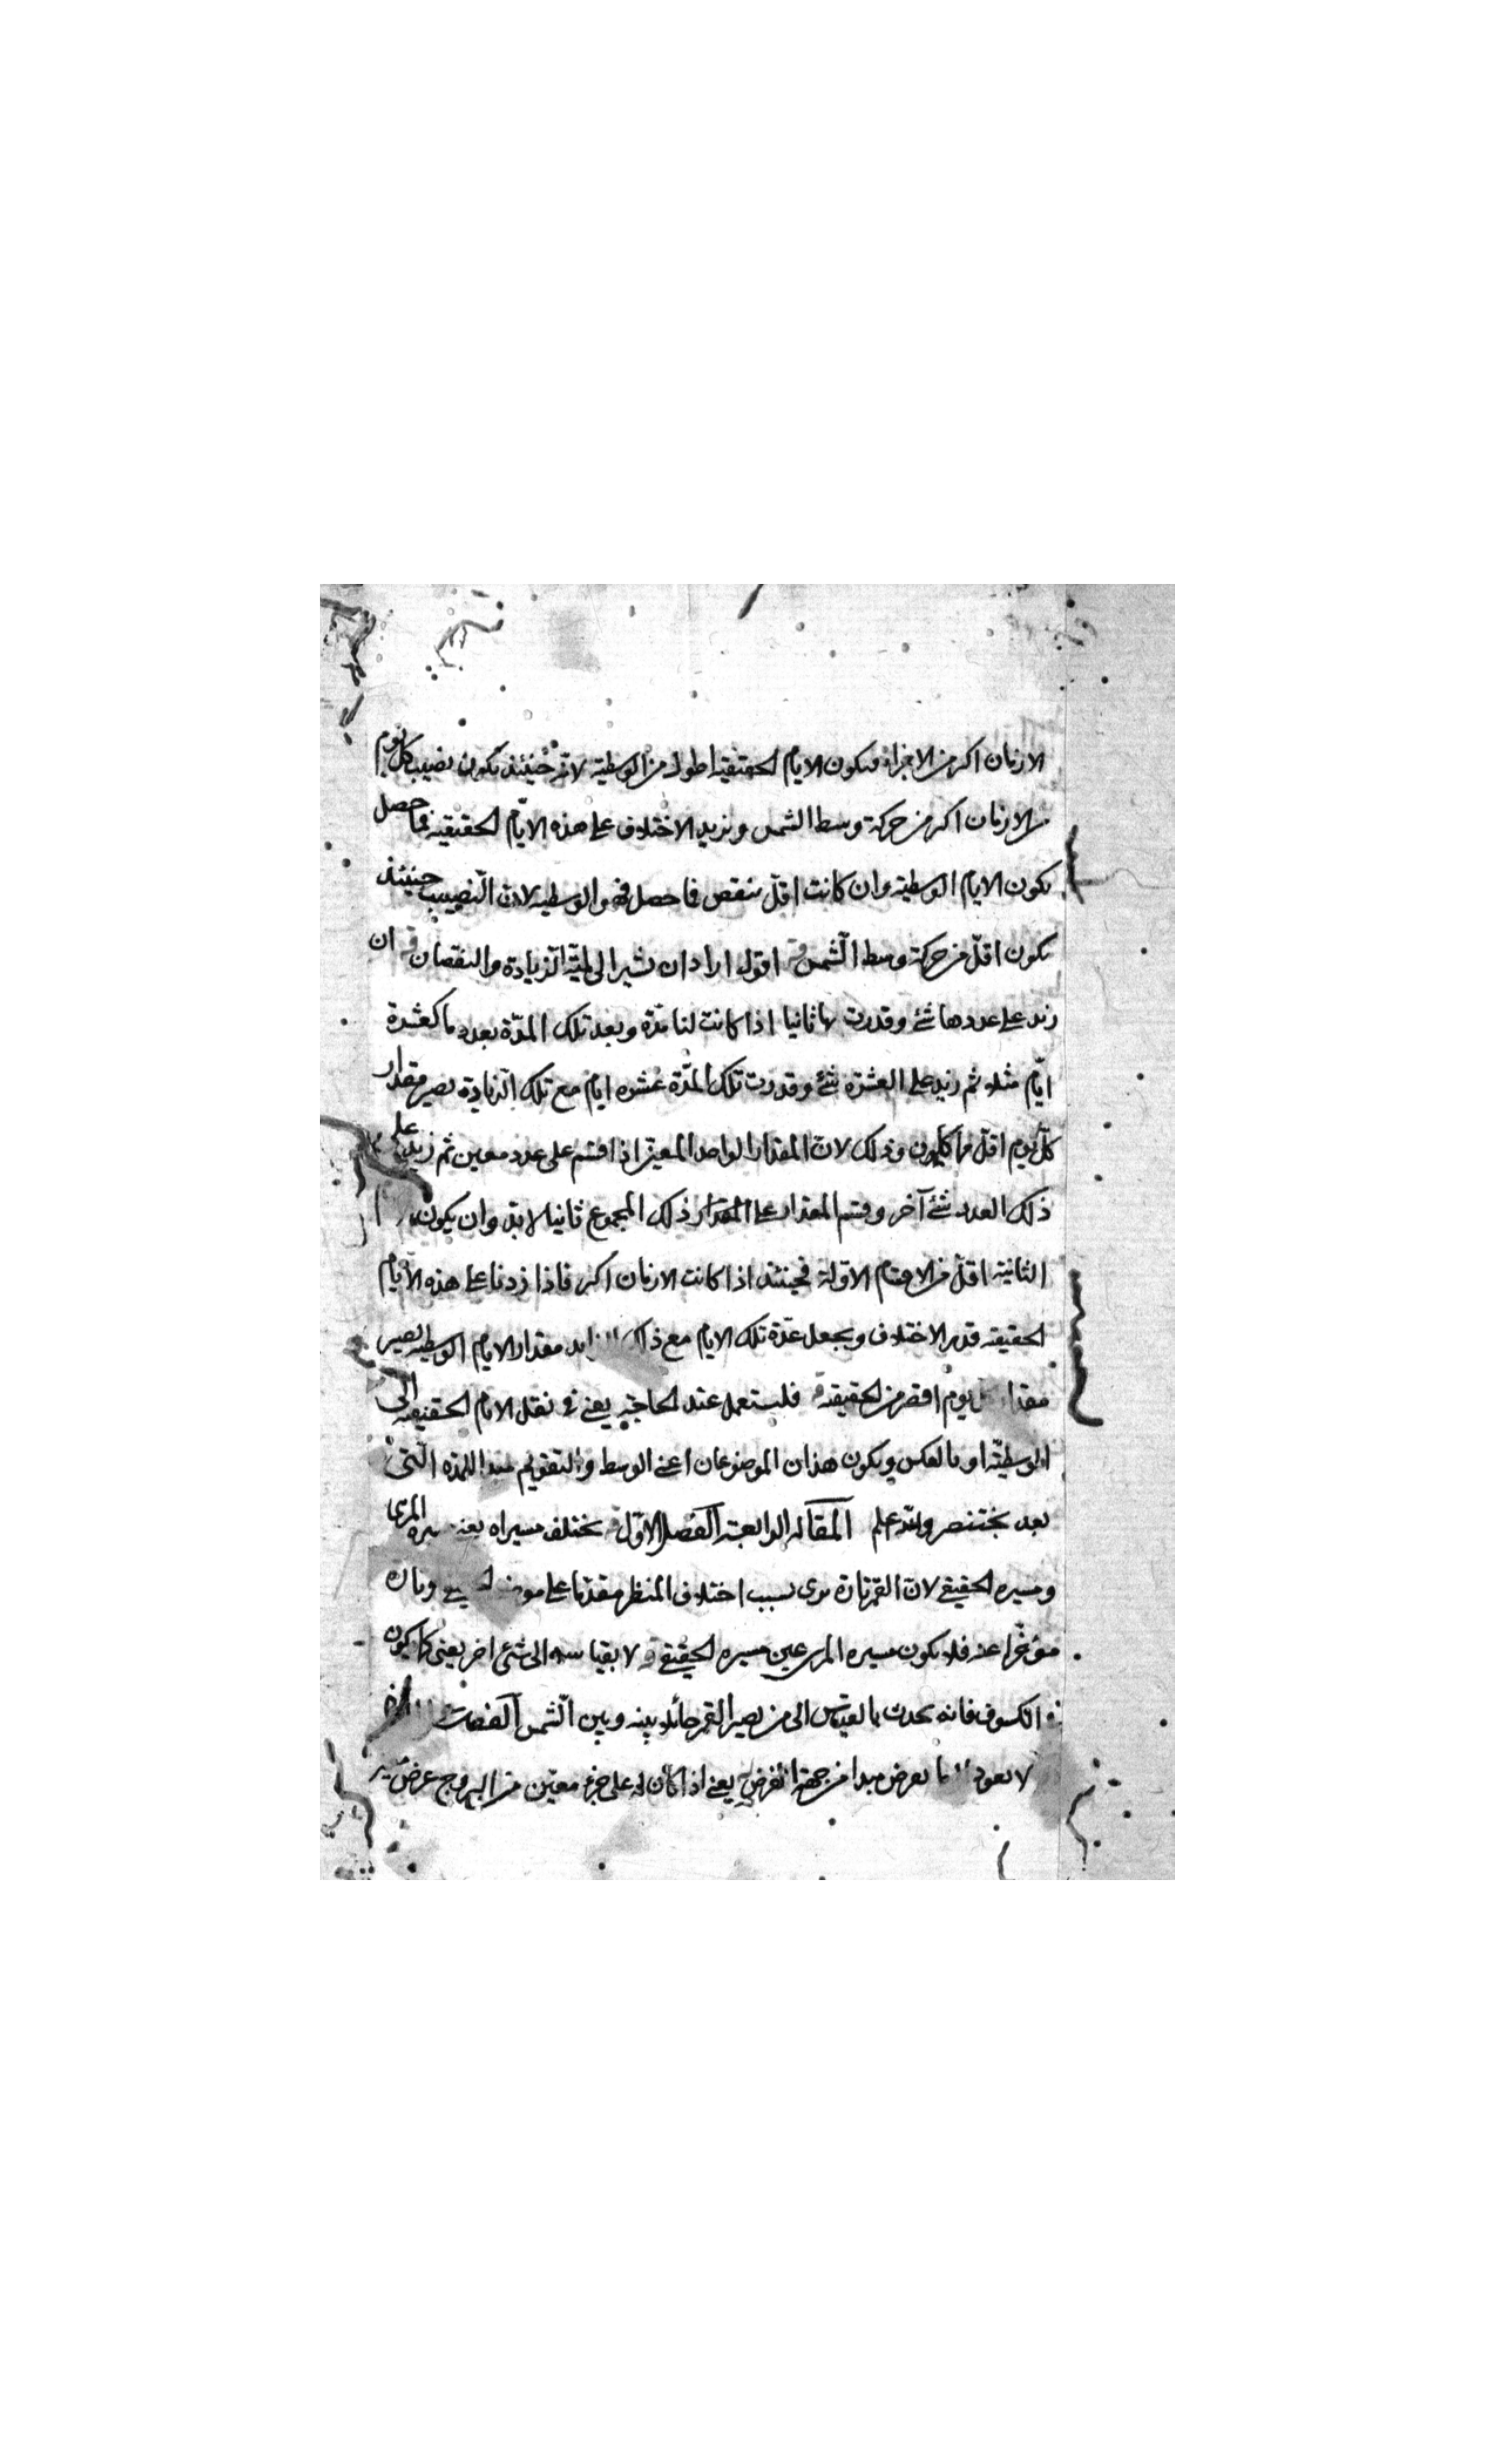 الازمان اكثر من الاجزاء فيكون الايام الحقيقية اطول من الوسطية لانه حينئذ يكون نصيب كل يوم
من الازمان اكثر من حركة وسط الشمس ونزيد الاختلاف على هذه الايام الحقيقية فما حصل
يكون الايام الوسطية وان كانت اقل ننقص فما حصل فهو الوسطية لان النصيب حينئذ
يكون اقل من حركة وسط الشمس اقول اراد ان يشير الى لمية الزيادة والنقصان ان
زيد على عددها شئ وقدرت بها ثانيا اذا كانت لنا مدة وبعد تلك المدة بعدد ما كعشرة
ايام مثلا ثم زيد على العشرة شئ وقدرت تلك المدة عشره ايام مع تلك الزيادة يصير مقدار
كل يوم اقل مما كان وذلك لان المقدار الواحد المعين اذا قسم على عدد معين ثم زيد على
ذلك العدد شئ آخر وقسم المقدار على المقدار ذلك المجموع ثانيا لابد وان يكون
الثانية اقل من الاقسام الاولة فحينئذ اذا كانت الازمان اكثر فاذا زدنا على هذه الايام
الحقيقيه قدر الاختلاف ويجعل عدة تلك الايام مع ذلك الزايد مقدار الايام الوسطية يصير
مقدار كل يوم اقصر من الحقيقية فليستعمل عند الحاجة يعني في نقل الايام الحقيقية الى
الوسطية او بالعكس ويكون هذان الموضوعان اعني الوسط والتقويم مبدا للمدة التي
بعد بختنصر والله اعلم المقالة الرابعة الفصل الاول يختلف مسيراه يعني مسيره المرئي
ومسيره الحقيقي لان القمر تارة يرى بسبب اختلاف المنظر مقدما على موضعه الحقيقي وتارة
مؤخرا عنه فلا يكون مسيره المرئي عين مسيره الحقيقي لا بقياسه الى شئ اخر يعني كما يكون
في الكسوف فانه يحدث بالقياس الى من يصير القمر حائلا بينه وبين الشمس الفصل
لا يعود يعرض مبدا من جهة العرض يعني اذا كان له على جزء معين من البروج عرض